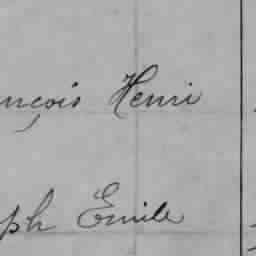 nçois Henri
ph Emile